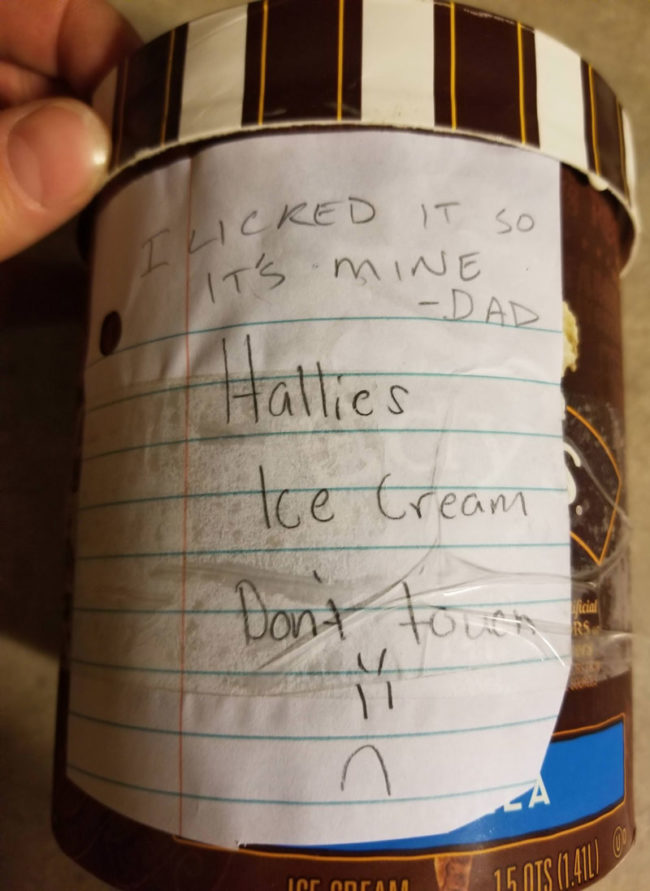 I LICKED IT SO
IT'S MINE
-DAD
Hallies
Ice Cream
Don't touch
ICE CREAM
1.5 QTS (1.41L)